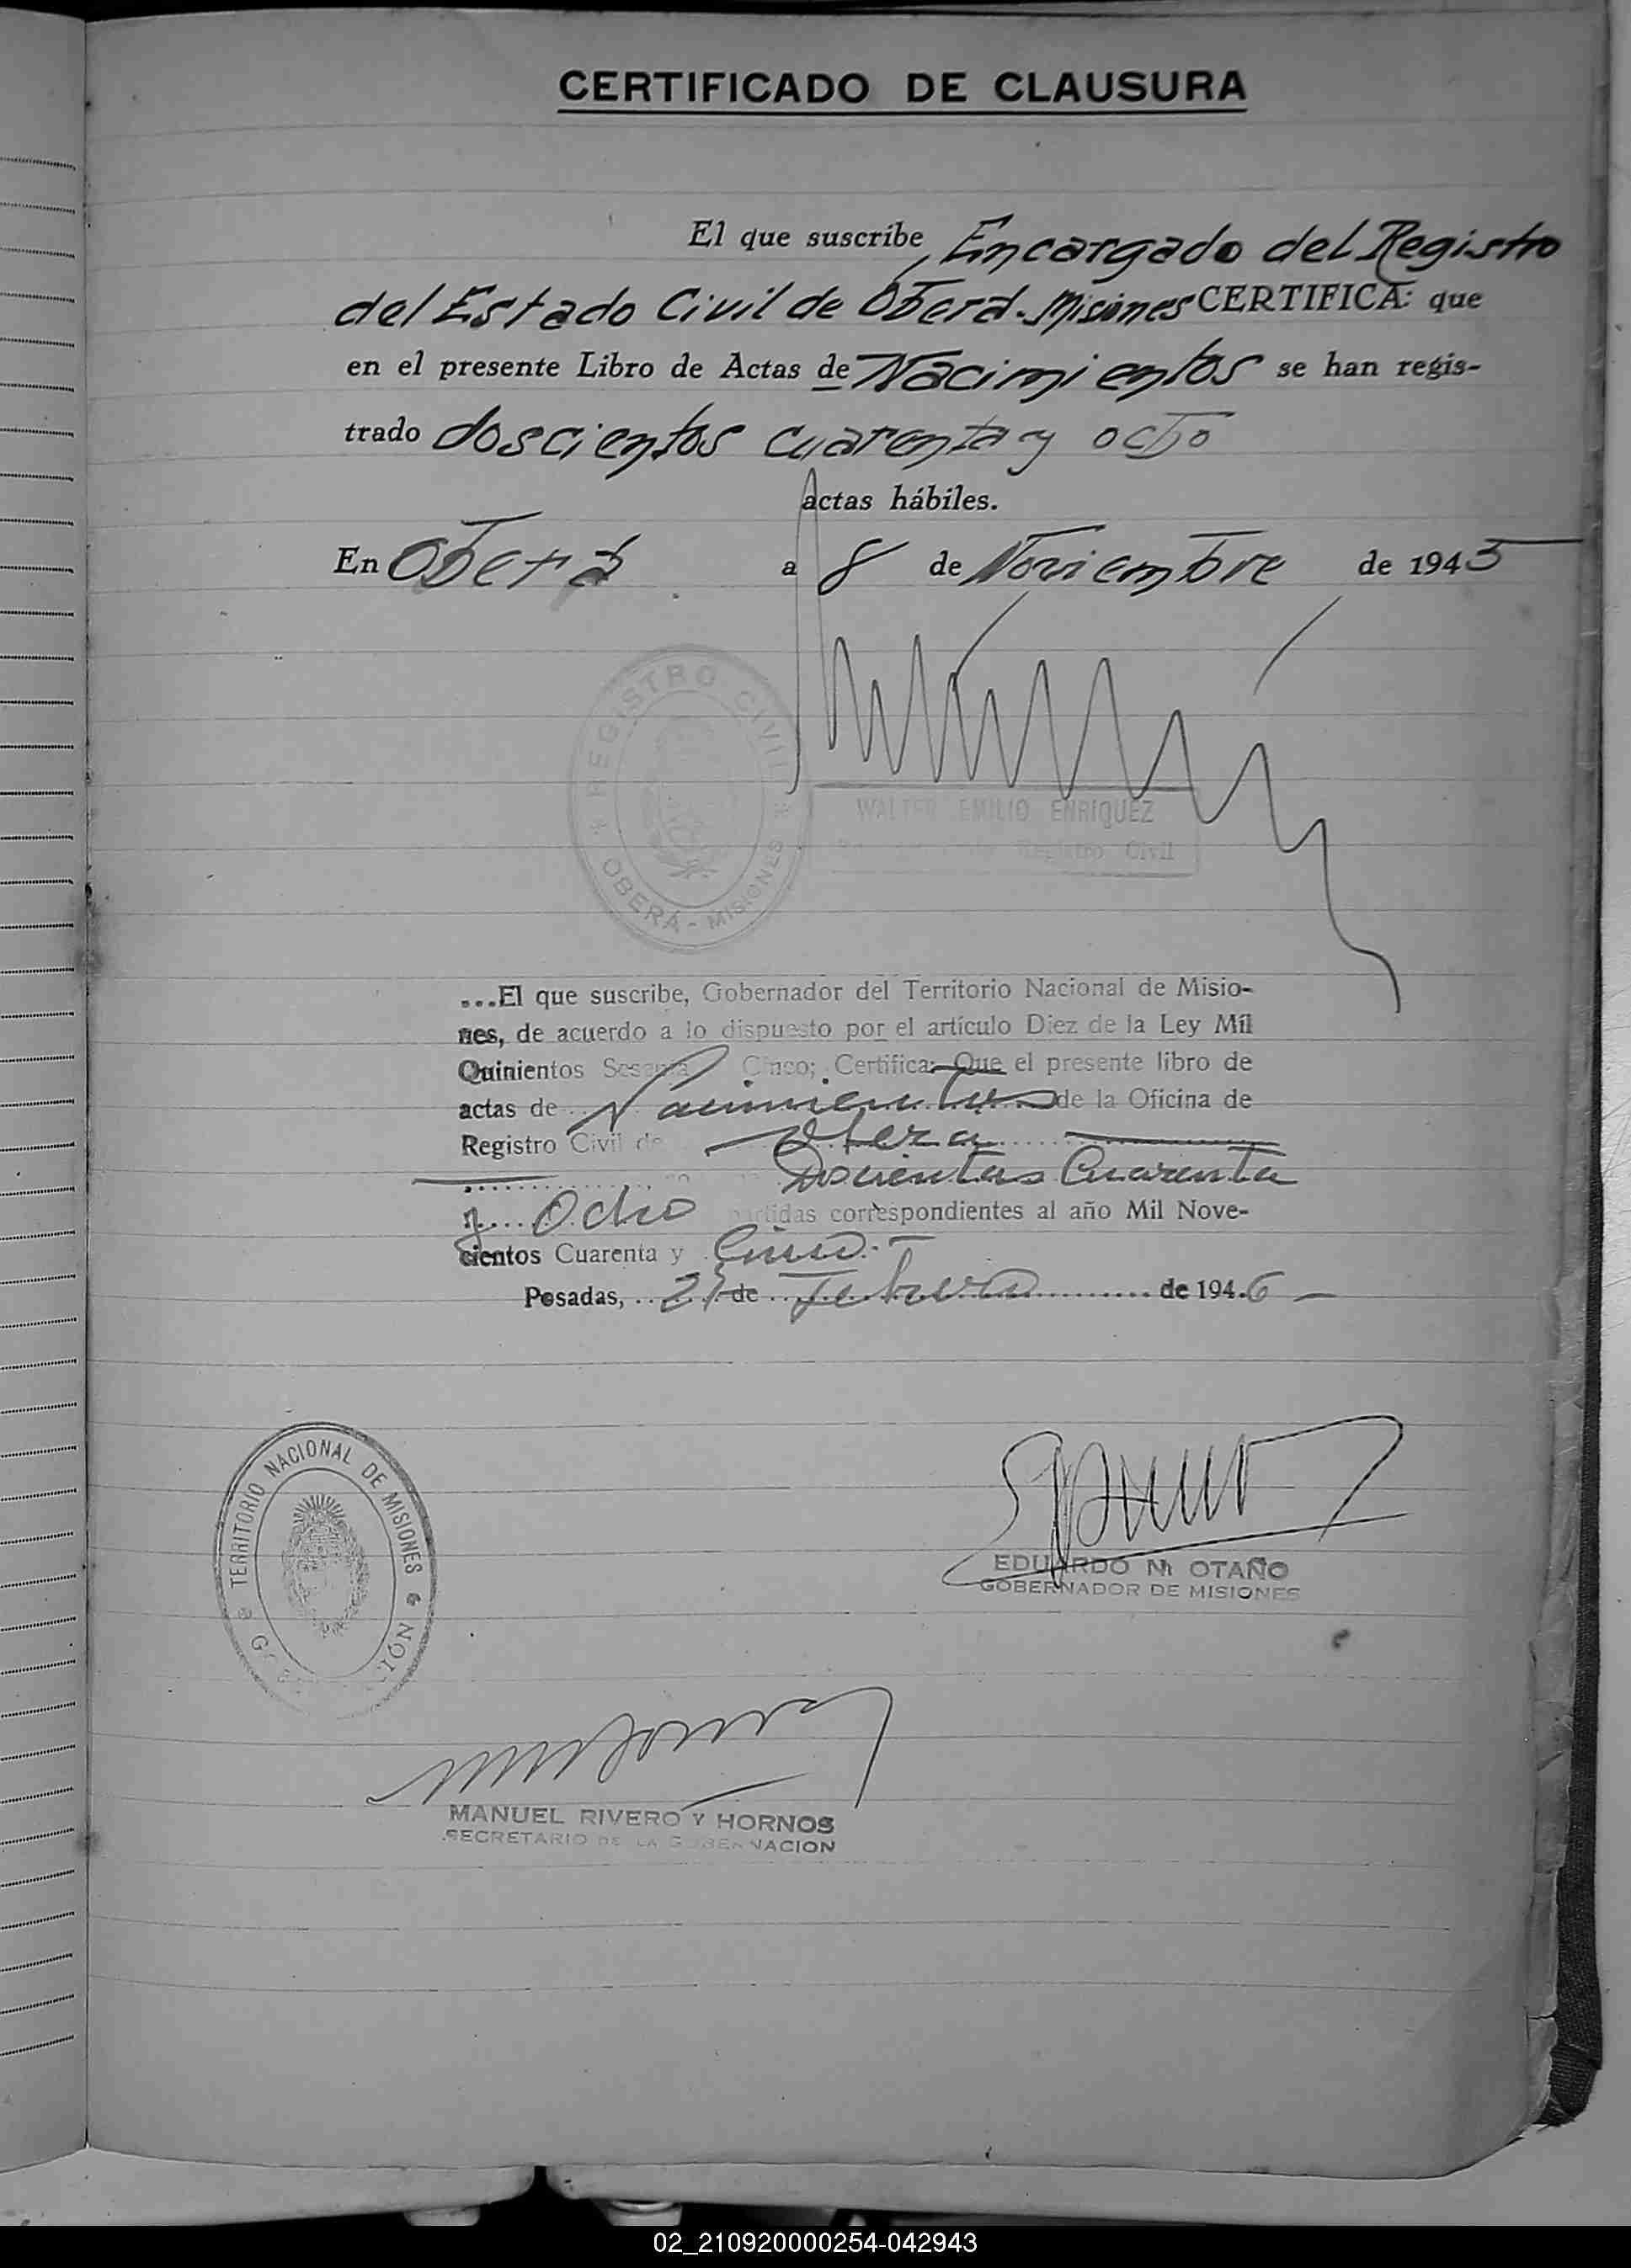 CERTIFICADO DE CLAUSURA
El que suscribe, Encargado del Registro
del Estado Civil de Oberá. Misiones CERTIFICA: que
en el presente Libro de Actas de Nacimientos se han regis-
trado doscientos cuarenta y ocho
actas hábiles.
En Oberá a 8 de Noviembre de 1945
REGISTRO CIVIL
OBERÁ - MISIONES
WALTER EMILIO ENRIQUEZ
Registro Civil
...El que suscribe, Gobernador del Territorio Nacional de Misio-
nes, de acuerdo a lo dispuesto por el artículo Diez de la Ley Mil
Quinientos Sesenta Cinco; Certifica: Que el presente libro de
actas de Nacimientos de la Oficina de
Registro Civil de Obera
Docientas Cuarenta
y Ocho partidas correspondientes al año Mil Nove-
cientos Cuarenta y Cinco.-
Posadas, de Febrero de 1946 —
TERRITORIO NACIONAL DE MISIONES
EDUARDO M. OTAÑO
GOBERNADOR DE MISIONES
MANUEL RIVERO Y HORNOS
SECRETARIO DE LA GOBERNACION
02_210920000254-042943